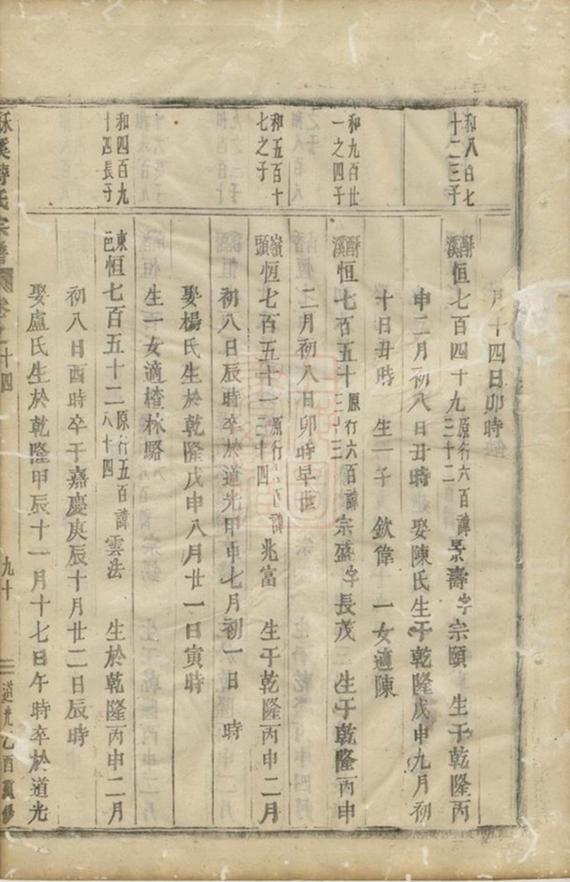 月十四日卯時
和八百七
十二三子
酥溪恒七百四十九原行六百三十二諱景壽字宗頤 生于乾隆丙
申二月初八日丑時 娶陳氏生于乾隆戊申九月初
十日丑時 生一子 欽偉 一女適陳
和九百世
一之四子
酥溪恒七百五十原行六百三十三諱宗盛字長茂 生于乾隆丙申
二月初八日卯時早世
和五百十
七之子
嶺頭恒七百五十一原行六百三十四諱兆富 生于乾隆丙申二月
初八日辰時卒於道光甲申七月初一日 時
娶楊氏生於乾隆戊申八月廿一日寅時
生一女適楂林駱
和四百九
十四長子
東邑恒七百五十二原行五百八十四諱雲法 生於乾隆丙申二月
初八日酉時卒于嘉慶庚辰十月廿二日辰時
娶盧氏生於乾隆甲辰十一月十七日午時卒於道光
酥溪傅氏宗譜 卷之十四 九十 道光乙酉重修